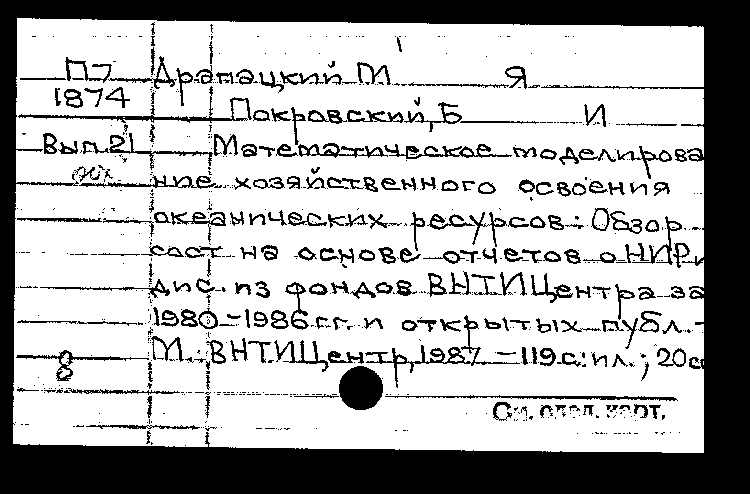 П7 Драпацкий М Я
1874 Покровский, Б И
Вып. 21 Математическое моделирова
ние хозяйственного освоения
океанических ресурсов: Обзор
сост на основе отчетов о НИР и
дис. из фондов ВНТИЦентра за
1980-1986 г.г. и открытых публ. -
М. ВНТИЦентр, 1987 - 119 с: ил.; 20 см
8
См. след. карт.